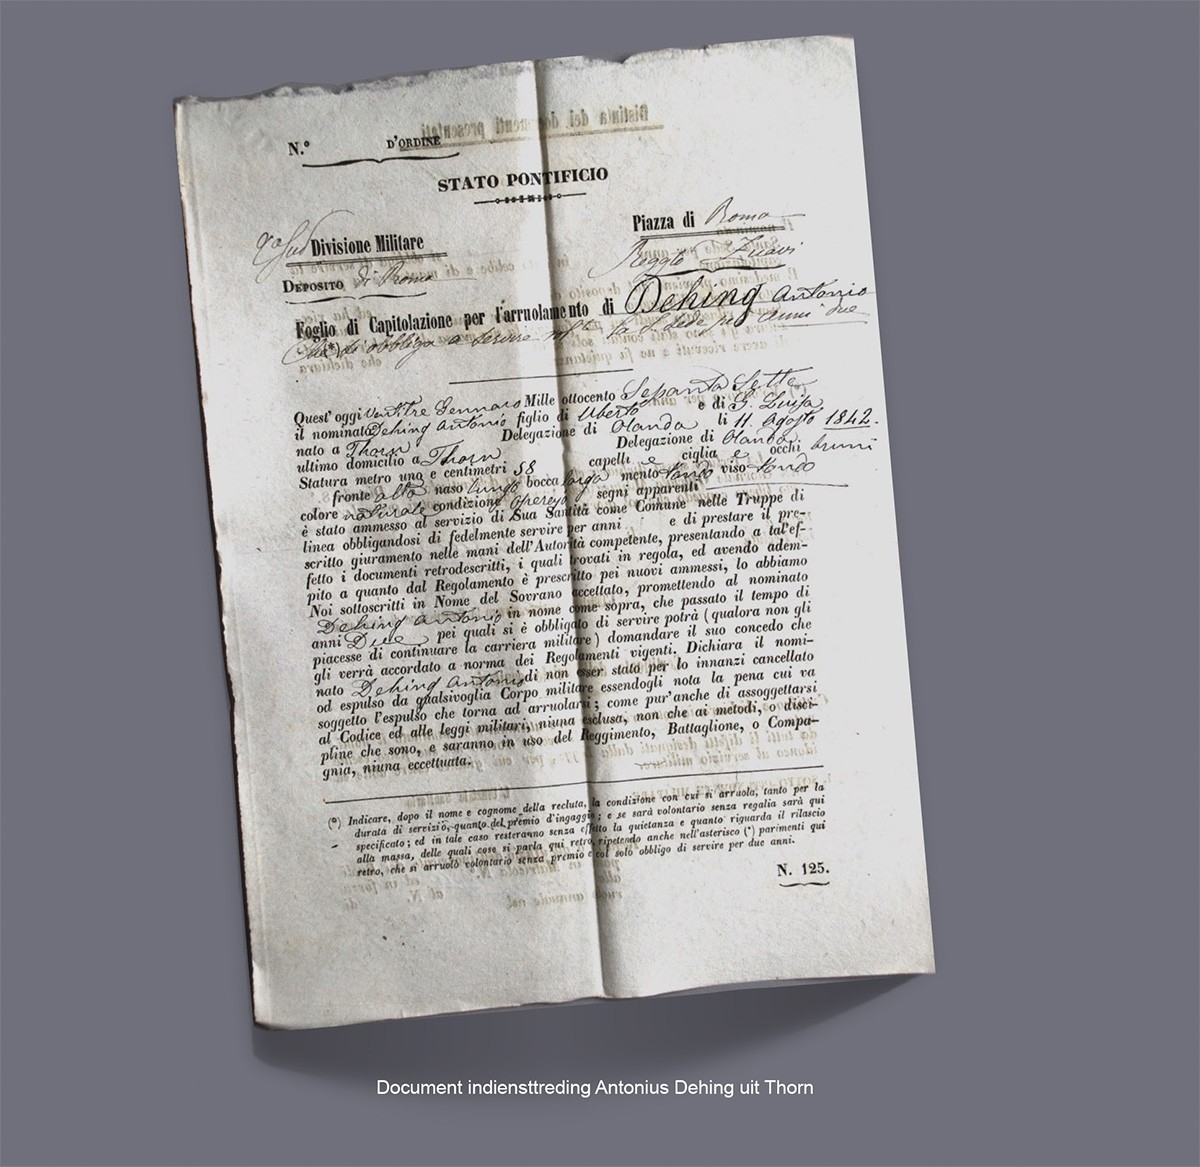 N.° D'ORDINE
STATO PONTIFICIO
Divisione Militare
Piazza di Roma
DEPOSITO di Roma
Zuavi
Foglio di Capitolazione per l'arruolamento di Dehing Antonio
(*) si obbliga a servire la S. Sede per anni due
Quest'oggi Ventitre Gennaro Mille ottocento Sessanta Sette
il nominato Dehing Antonio figlio di Uberto e di G. Luisa
nato a Thorn Delegazione di Olanda li 11. Agosto 1842.
ultimo domicilio a Thorn Delegazione di Olanda
Statura metro uno e centimetri 58 capelli e ciglia e occhi bruni
fronte alta naso lungo bocca larga mento tondo viso tondo
colore naturale condizione segni apparenti
è stato ammesso al servizio di Sua Santità come Comune nelle Truppe di
linea obbligandosi di fedelmente servire per anni e di prestare il pre-
scritto giuramento nelle mani dell'Autorità competente, presentando a tal'ef-
fetto i documenti retrodescritti, i quali trovati in regola, ed avendo adem-
pito a quanto dal Regolamento è prescritto pei nuovi ammessi, lo abbiamo
Noi sottoscritti in Nome del Sovrano accettato, promettendo al nominato
Dehing Antonio in nome come sopra, che passato il tempo di
anni Due pei quali si è obbligato di servire potrà (qualora non gli
piacesse di continuare la carriera militare) domandare il suo concedo che
gli verrà accordato a norma dei Regolamenti vigenti. Dichiara il nomi-
nato Dehing Antonio di non esser stato per lo innanzi cancellato
od espulso da qualsivoglia Corpo militare essendogli nota la pena cui va
soggetto l'espulso che torna ad arruolarsi; come pur'anche di assoggettarsi
al Codice ed alle leggi militari, niuna esclusa, non che ai metodi, o disci-
pline che sono, e saranno in uso del Reggimento, Battaglione, o Compa-
gnia, niuna eccettuata.
(*) Indicare, dopo il nome e cognome della recluta, la condizione con cui si arruola, tanto per la
durata di servizio, quanto del premio d'ingaggio; e se sarà volontario senza regalia sarà qui
specificato; ed in tale caso resteranno senza effetto la quietanza e quanto riguarda il rilascio
alla massa, delle quali cose si parla qui retro, ripetendo anche nell'asterisco (*) parimenti qui
retro, che si arruolò volontario senza premio e col solo obbligo di servire per due anni.
N. 125.
Document indiensttreding Antonius Dehing uit Thorn